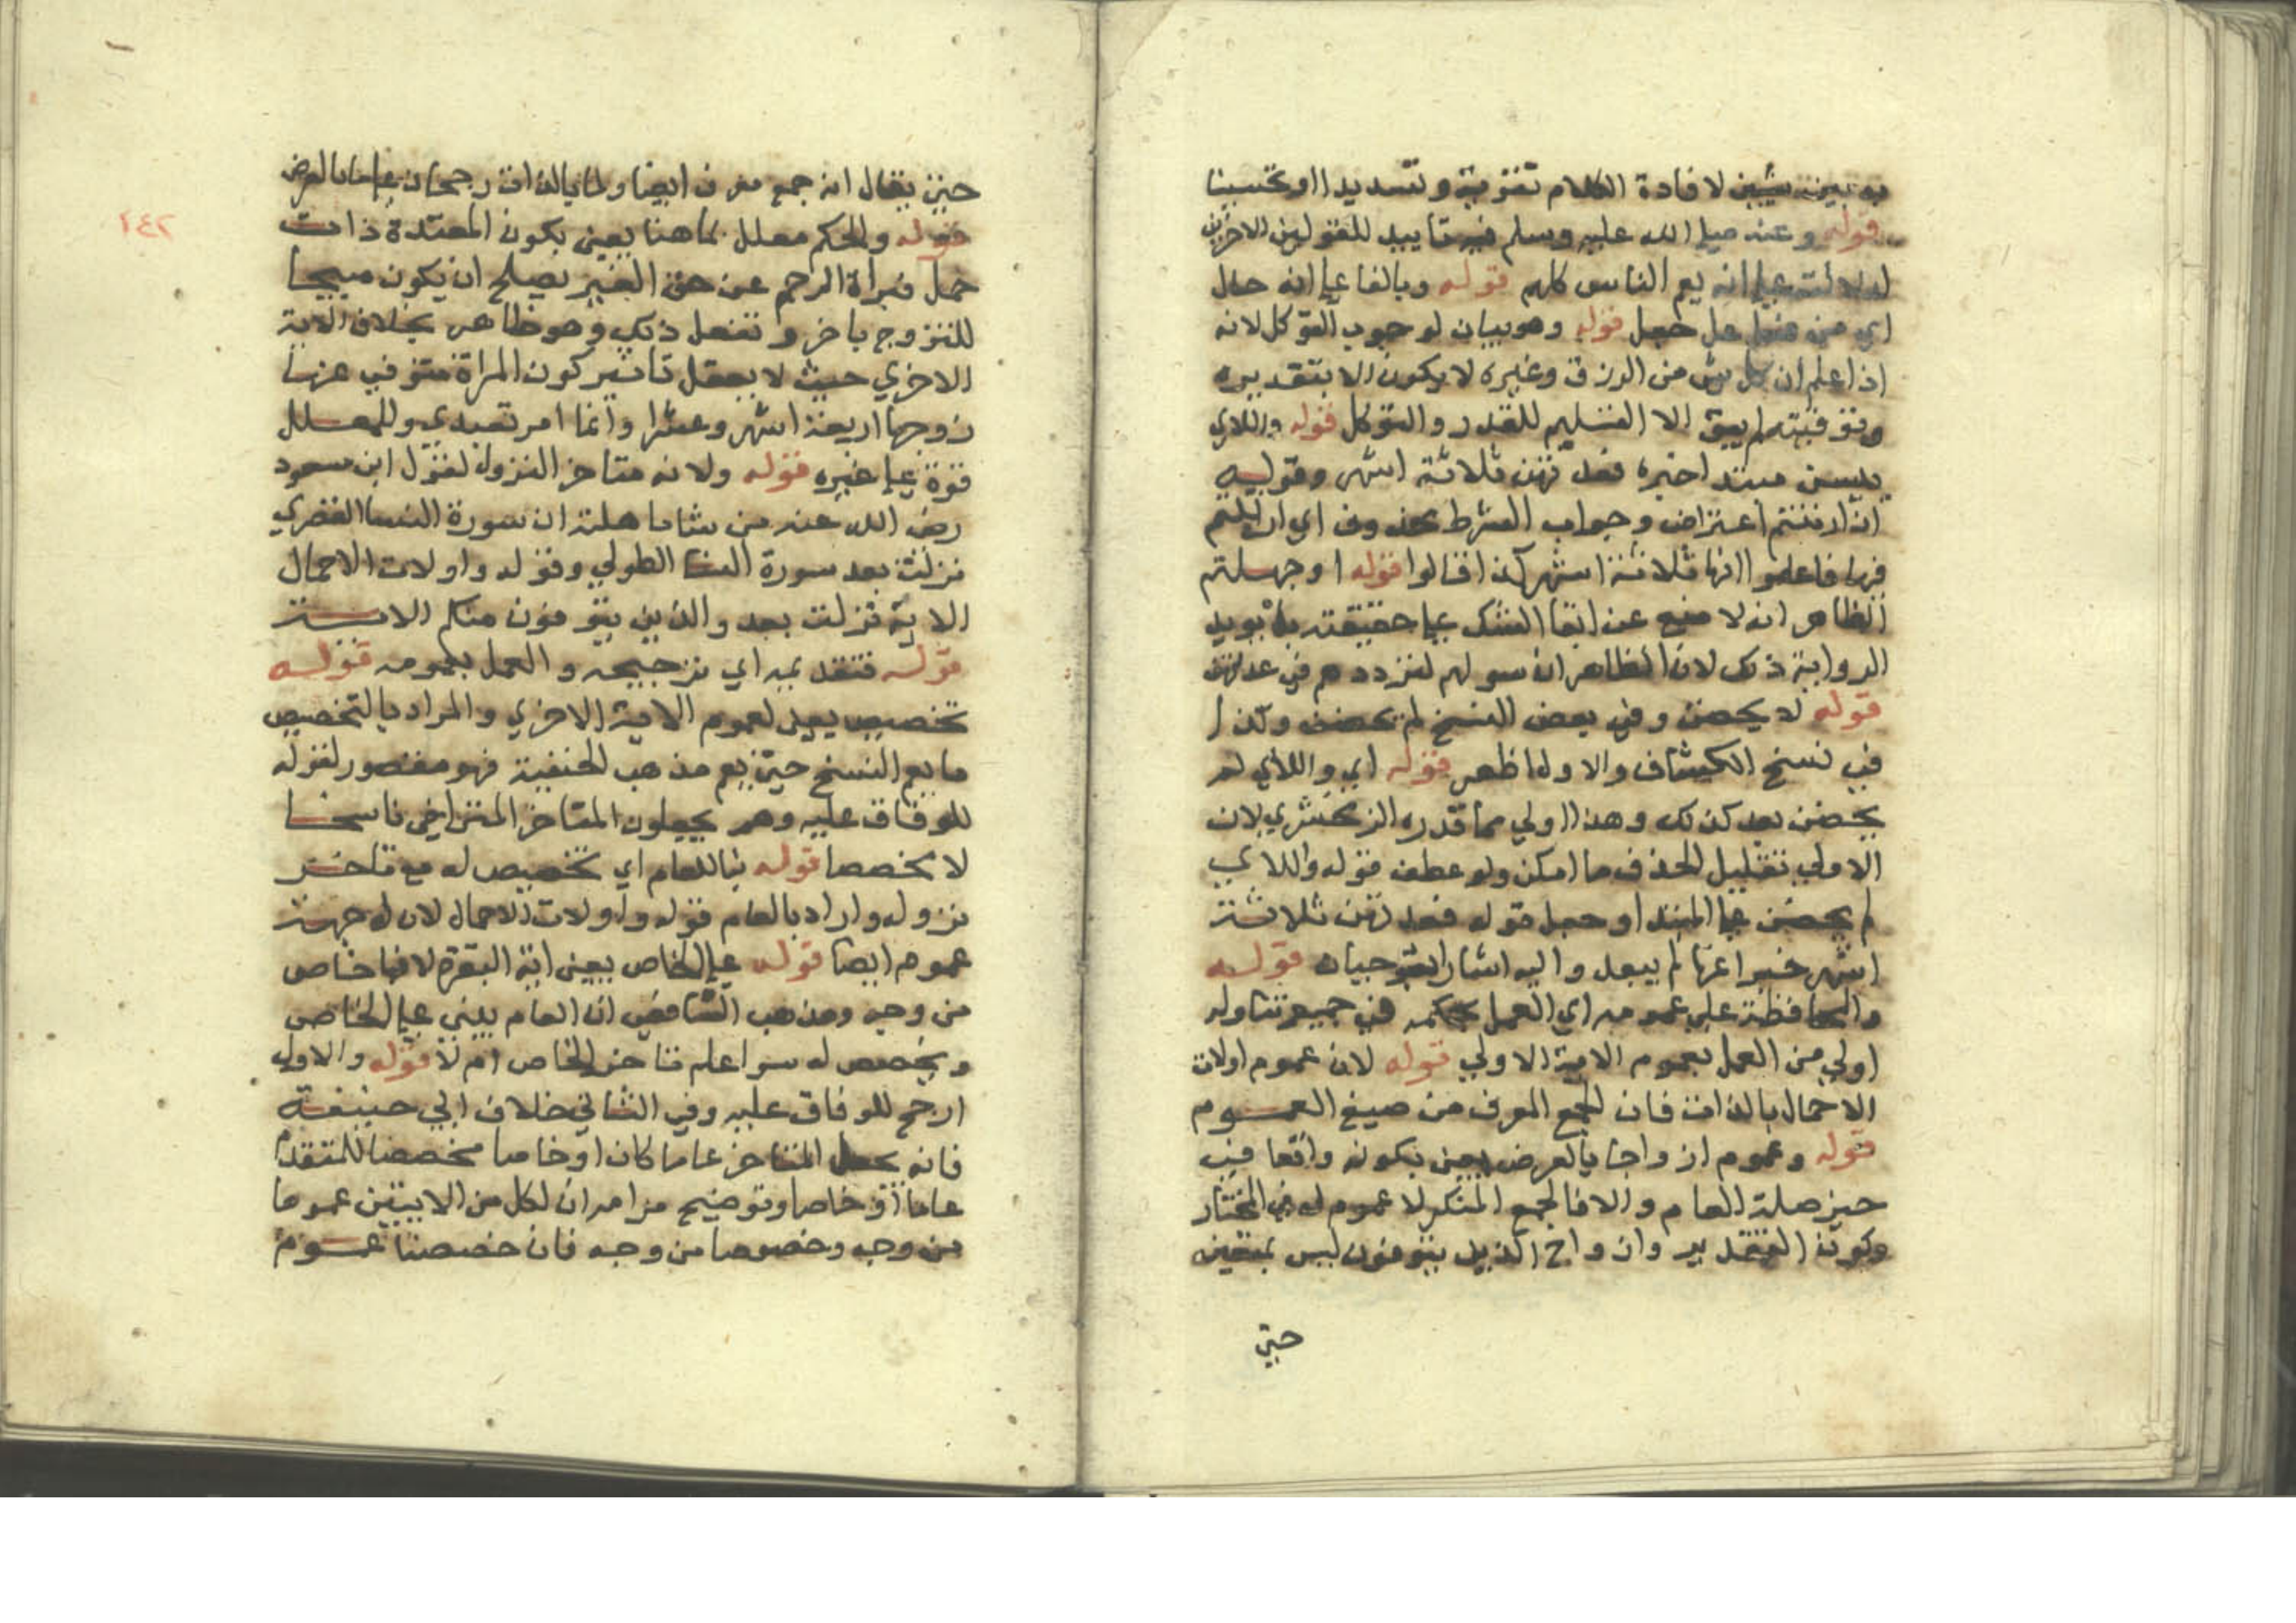 به بين شيئين لافادة الكلام تقوية وتسديدا او تحسينا
قوله وعنه صلي الله عليه وسلم فيه تاييد للقولين الاخرين
لدلالته علي انه يعم الناس كلهم قوله وبالغا علي انه حال
اي من فعل جعل قوله وهو بيان لوجوب التوكل لانه
اذا علم ان كل شي من الرزق وغيره لا يكون الا بتقديره
وتوقيته لم يبق الا التسليم للقدر والتوكل قوله واللاي
يئسن مبتدا خبره فعدتهن ثلاثة اشهر وقوله
ان ارتبتم اعتراض وجواب الشرط محذوف اي ان ارتبتم
فيها فاعلموا انها ثلاثة اشهر كذا قالوا قوله او جهلتم
الظاهر انه لا منع عن ابقا الشك علي حقيقته بل يويد
الرواية ذلك لان الظاهر ان سوالهم لترددهم في عدتهن
قوله لا يحضن وفي بعض النسخ لم يحضن وكذا
في نسخ الكشاف والاول اظهر قوله اي واللاي لم
يحضن بعد كذلك وهذا اولي مما قدره الزمخشري لان
الاولي تقليل الحذف ما امكن ولو عطف قوله واللاي
لم يحضن علي المبتدا وجعل قوله فعدتهن ثلاثة
اشهر خبرا عنها لم يبعد واليه اشار ابو حيان قوله
والمحافظة علي عمومه اي العمل بحكمه في جميع تناوله
اولي من العمل بعموم الاية الاولي قوله لان عموم اولات
الاحمال بالذات فان الجمع المعرف من صيغ العموم
قوله وعموم ازواجا بالعرض يعني بكونه واقعا في
حيز صلة العام والا فالجمع المنكر لا عموم له في المختار
وكون التقدير وازواج الذين يتوفون ليس بمتعين
حتي
حتي يقال انه جمع معرف ايضا ولما بالذات رجحان علي ما بالعرض
٢٤٢
قوله والحكم معلل ثم هنا يعني بكون المعتدة ذات
حمل فبراة الرحم عن حق الغير يصلح ان يكون مبيحا
للتزوج باخر وتعقل ذلك وهو ظاهر بخلاف الاية
الاخري حيث لا يعقل تاثير كون المراة متوفي عنها
زوجها اربعة اشهر وعشرا وانما امر تعبدي وللمعلل
قوة علي غيره قوله ولانه متاخر النزول لقول ابن مسعود
رضي الله عنه من شا باهلته ان سورة النسا القصري
نزلت بعد سورة النسا الطولي وقوله واولات الاحمال
الاية نزلت بعد والذين يتوفون منكم الاية
قوله فتقديمه اي ترجيحه والعمل بعمومه قوله
تخصيص يعني لعموم الاية الاخري والمراد بالتخصيص
ما يعم النسخ حتي يعم مذهب الحنفية فهو مقصور لقوله
للوفاق عليه وهم يجعلون المتاخر المتراخي ناسخا
لا مخصصا قوله بنا للعام اي تخصيص له مع تاخر
نزوله واراد بالعام قوله واولات الاحمال لان له جهة
عموم ايضا قوله علي الخاص يعني اية البقرة لانها خاص
من وجه ومذهب الشافعي ان العام يبني علي الخاص
ويخصص له سوا علم تاخر الخاص ام لا قوله والاول
ارجح للوفاق عليه وفي الثاني خلاف ابي حنيفة
فانه يجعل المتاخر عاما كان او خاصا مخصصا للمتقدم
عاما او خاصا وتوضيح مرامه ان لكل من الايتين عموما
من وجه وخصوصا من وجه فان خصصنا عموم